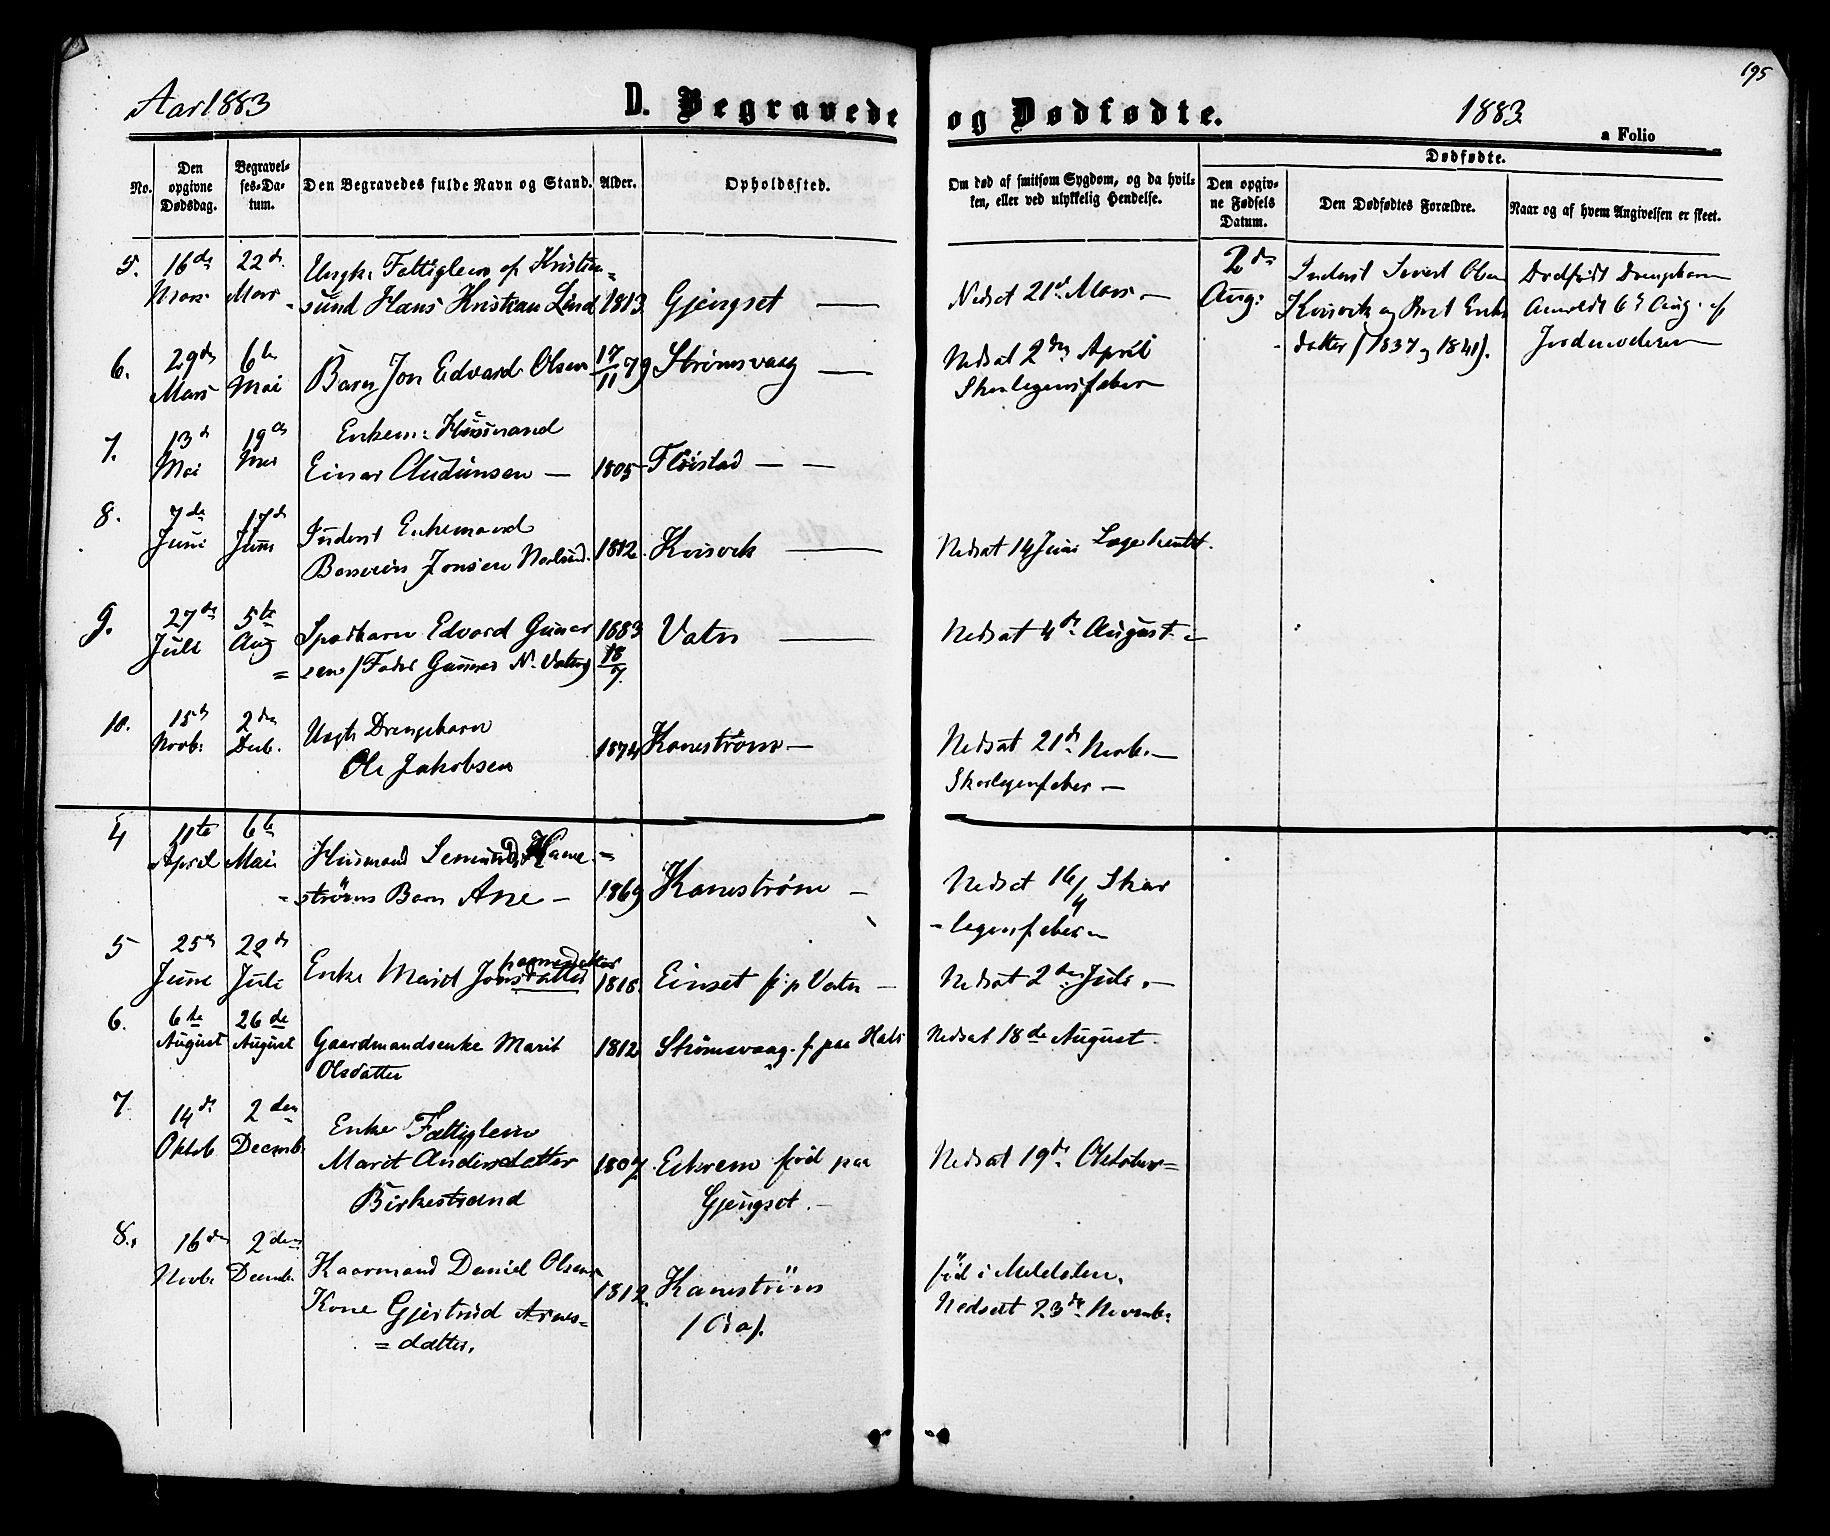 195
Aar 1883
D. Begravede og Dødfødte.
1883.
a Folio
No.
Den opgivne Dødsdag.
Begravelses-Datum.
Den Begravedes fulde Navn og Stand.
Alder.
Opholdssted.
Om død af smitsom Sygdom, og da hvilken, eller ved ulykkelig Hendelse.
Dødfødte.
Den opgivne Fødsels Datum.
Den Dødfødtes Forældre.
Naar og af hvem Angivelsen er skeet.
5. 16de Mars 22de Mars
Ungk. Fattiglem af Kristian=
sund Hans Kristian Lind 1813. Gjengset —
Nedsat 21de Mars. —
2den Aug:
Inderst Sivert Olsen
Kvisvik og Beret Eriks
datter (1837 og 1841).
Dødfødt Drengebarn
Anmeldt 6te Aug. af
Jordemoderen
6. 29de Mars 6te Mai
Barn Jon Edvard Olsen 17/11 79 Strømsvaag —
Nedsat 2den April
Skarlagensfeber —
7. 13de Mai 19de Mai
Enkem: Husmand
Einar Audunsen — 1805 Fløistad — —
8. 7de Juni 17de Juni
Inderst Enkemand
Jonsen 1812. Kvisvik —
Nedsat 14 Juni
9. 27de Juli 5te Aug
Spædbarn Edvard Gunnar=
sen (Fader Gunnar N. Vatn) 1883 18/7. Vatn —
Nedsat 4de August. —
10. 15de Novb: 2den Decb.
Ungk. Drengebarn
Ole Jakobsen 1874 Kanestrøm —
Nedsat 21de Novb. —
Skarlagensfeber —
4 11te April 6te Mai
Husmand Kane=
=strøms Barn Ane — 1869 Kanestrøm —
Nedsat 16/4 Skar
-lagensfeber —
5 25de June 22de Jule
Enke Marit Jonsdatter 1818. Einset f: p Vatn —
Nedsat 2den Juli. —
6. 6te August 26de August
Gaardmandsenke Marit
Olsdatter 1812 Strømsvaag. f. paa Hals
Nedsat 18de August.
7 14de Oktob 2den Decemb.
Enke Fattiglem
Marit Andersdatter
Birkestrand 1807. Eikrem fød paa
Gjengset. —
Nedsat 19de Oktober —
8. 16de Novbr 2den Decemb.
Kaarmand Daniel Olsens
Kone Gjertrud Arnes=
=datter. 1812. Kanestrøm
(Øra).
fød i Meldalen.
Nedsatt 23de Novemb.